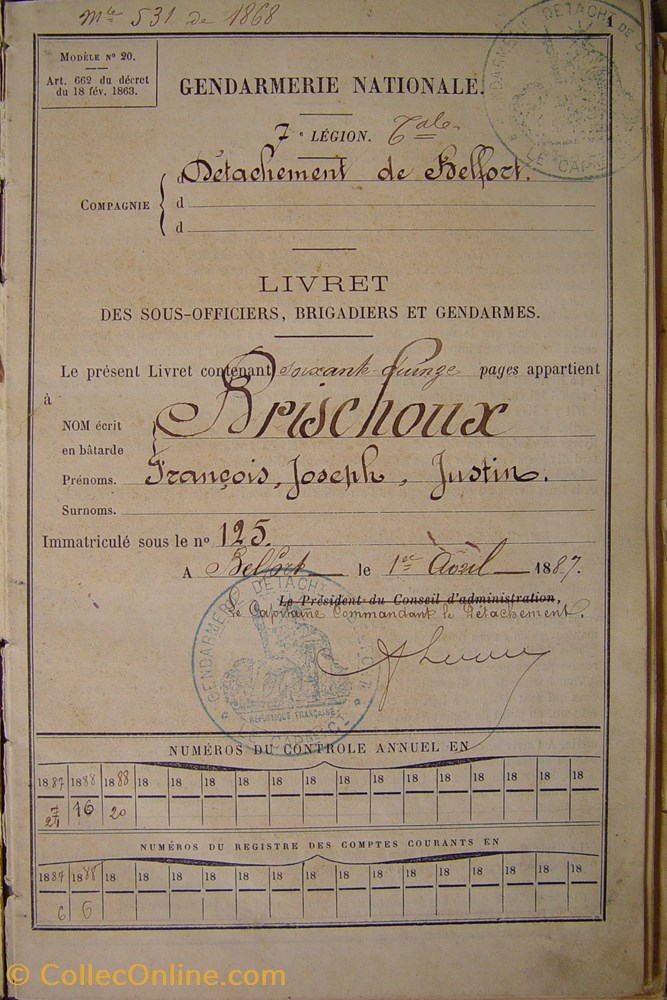 Mle 531 de 1868
1
MODÈLE N° 20.
Art. 662 du décret
du 18 fév. 1863.
GENDARMERIE NATIONALE.
7e LÉGION.
COMPAGNIE
d Détachement de Belfort.
d
d
LIVRET
DES SOUS-OFFICIERS, BRIGADIERS ET GENDARMES.
Le présent Livret contenant soixante quinze pages appartient
à
NOM écrit
en bâtarde
Brischoux
Prénoms. François, Joseph, Justin.
Surnoms.
Immatriculé sous le no 125.
A Belfort le 1er Avril 1887.
Le Président du Conseil d'administration,
Le Capitaine Commandant le Détachement.
GENDARMERIE DÉTACHt
RÉPUBLIQUE FRANÇAISE
LE CAPNE CT
NUMÉROS DU CONTRÔLE ANNUEL EN
1887 1888 1888 18 18 18 18 18 18 18 18 18 18 18 18 18 18
16 20
NUMÉROS DU REGISTRE DES COMPTES COURANTS EN
1887 1888 18 18 18 18 18 18 18 18 18 18 18 18 18 18 18
6 6
© CollecOnline.com